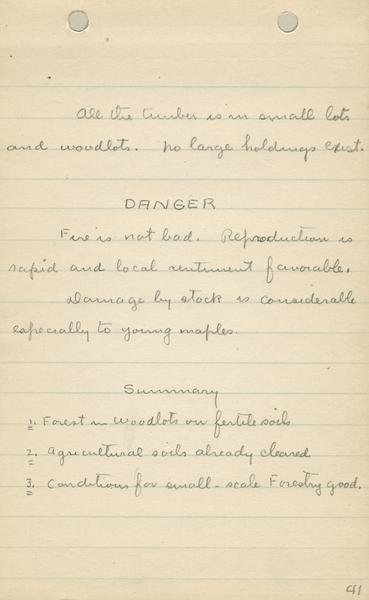 All the timber is in small lots
and woodlots. No large holdings exist.
DANGER
Fire is not bad. Reproduction is
rapid and local sentiment favorable.
Damage by stock is considerable
especially to young maples.
Summary
1. Forest in Woodlots on fertile soils
2. Agricultural soils already cleared
3. Conditions for small-scale Forestry good.
41